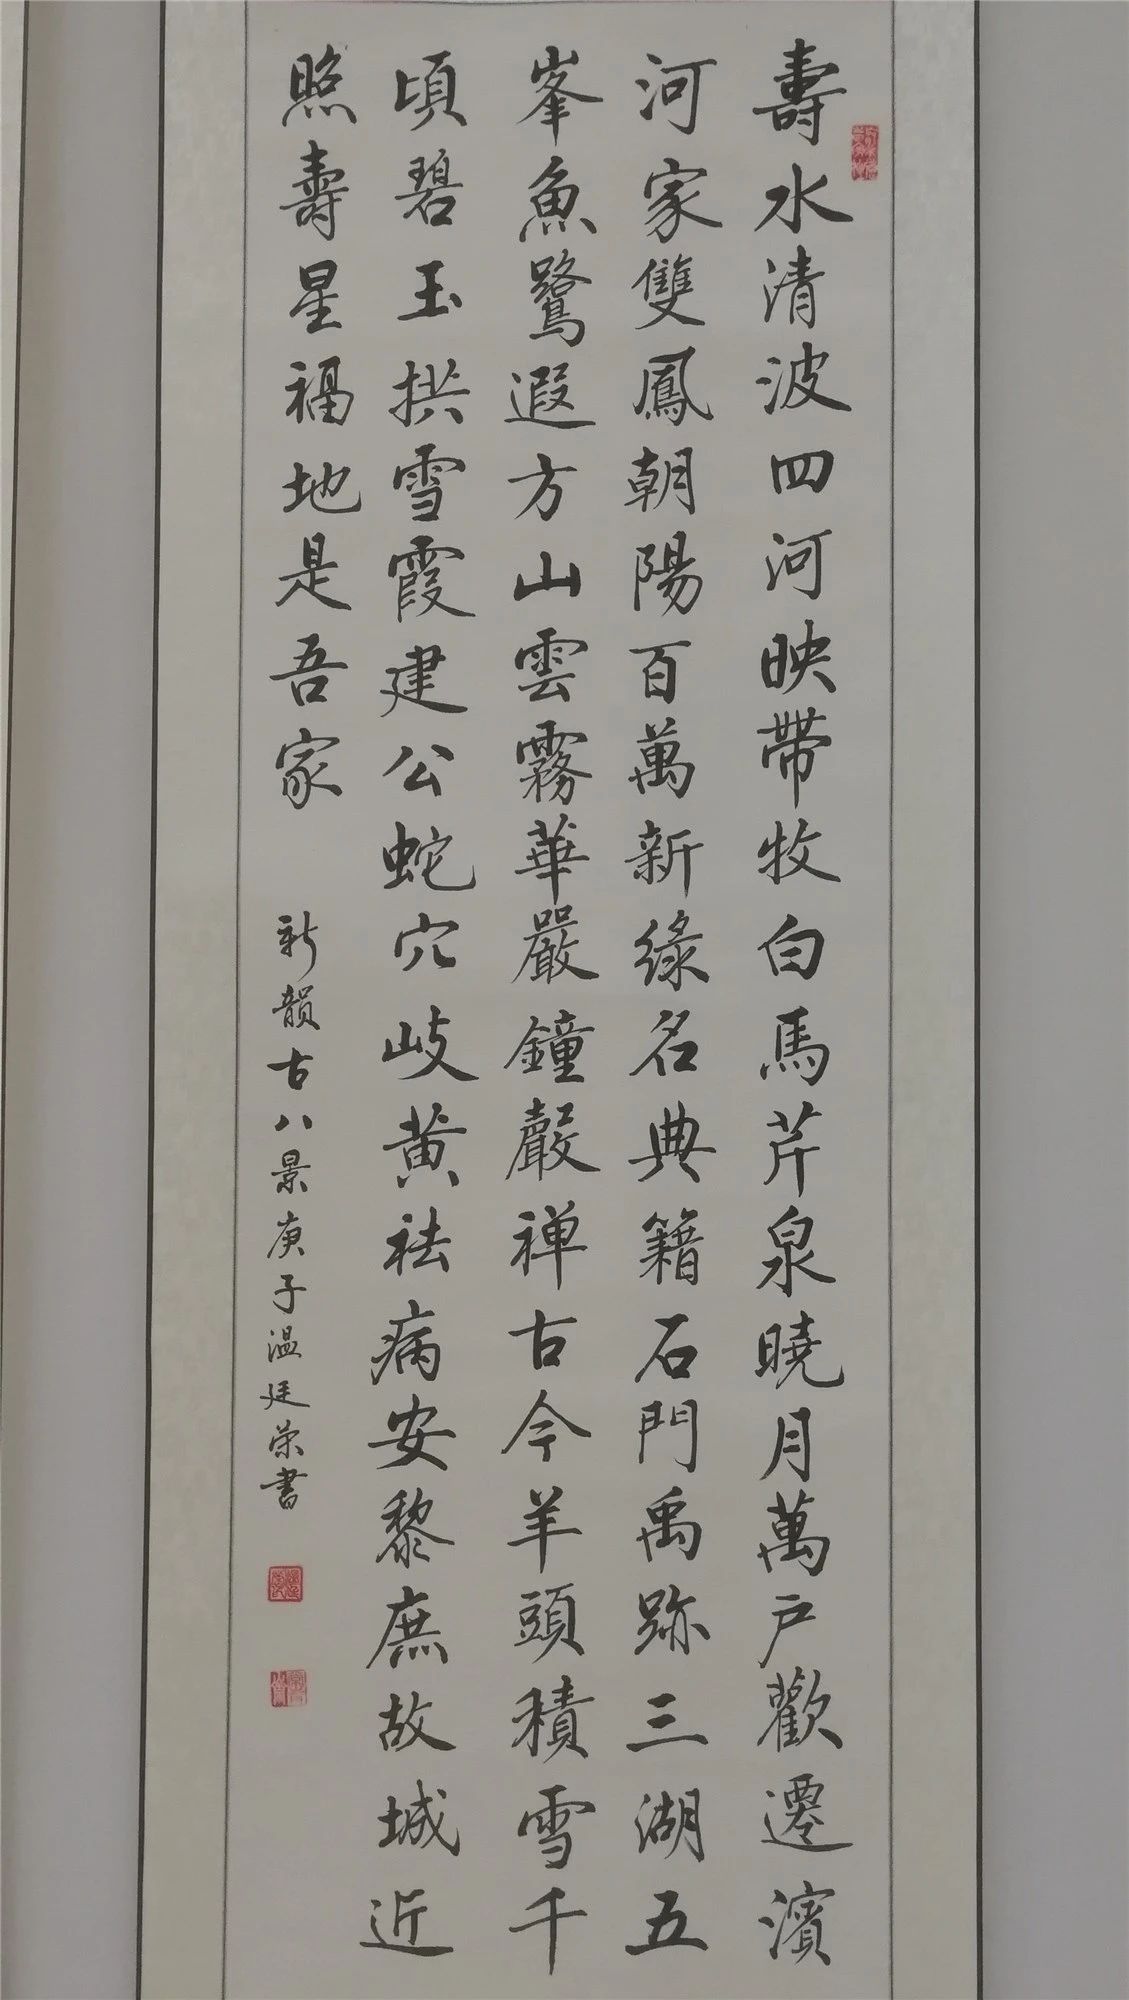 壽水清波四河映帶牧白馬芹泉曉月萬户歡遷濱
河家雙鳳朝陽百萬新綠名典籍石門禹跡三湖五
峯魚鷺遐方山雲霧華嚴鐘聲禅古今羊頭積雪千
頃碧玉拱雪霞建公蛇穴岐黄祛病安黎庶故城近
照壽星福地是吾家
新韻古八景庚子温廷荣書